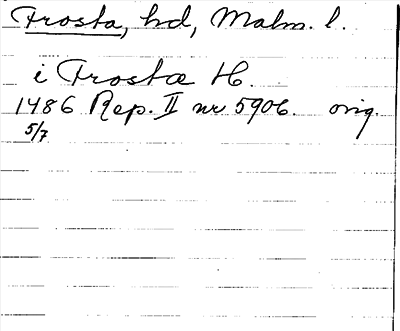 Frosta, hd, Malm. l.
i Frostæ H.
1486 Rep. II nr 5906. orig.
5/7